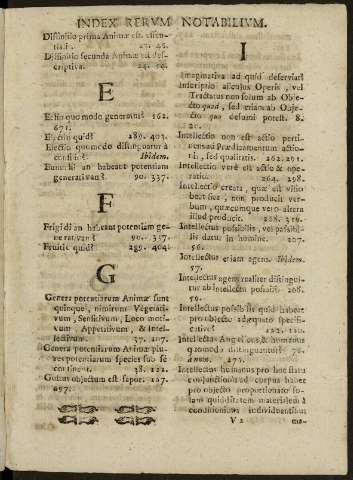 INDEX RERVM NOTABILIVM.
Diffinitio prima Animæ est essen-
tialis. 27. 26.
Diffinitio secunda Animæ est des-
criptiva. 24. 54.
E
Ectio quo modo generatus 162.
671.
Electio quid? 289. 404.
Electio quomodo distinguatur à
consilio? Ibidem.
Eunuchi an habeant potentiam
generativam? 90. 337.
F
Frigidi an habeant potentiam ge-
nerativam? 90. 337.
Fruitio quid? 289. 404.
G
Genera potentiarum Animæ sunt
quinque, nimirum Vegetati-
vum, Sensitivum, Loco moti-
vum, Appetitivum, & Intel-
lectivum. 37. 107.
Genera potentiarum Animæ plu-
res potentiarum species sub se
continent. 38. 111.
Gustus objectum est sapor. 127.
697.
I
Imaginativa ad quid deserviat?
Inscriptio alicujus Operis, vel
Tractatus non solum ab Obje-
cto quod, sed etiam ab Obje-
cto quo desumi potest. 8.
21.
Intellectio non est actio perti-
nens ad Prædicamentum actio-
nis, sed qualitatis. 262. 291.
Intellectio verè est actio & ope-
ratio. 264. 298.
Intellectio creata, quæ est visio
beatifica, non producit ver-
bum, quæcunque verò altera
illud producit. 268. 319.
Intellectus possibilis, vel passibi-
lis datur in homine. 207.
56.
Intellectus etiam agens. Ibidem.
57.
Intellectus agens realiter distingui-
tur ab intellectu possibili. 208.
59.
Intellectus possibilis quid habeat
pro objecto adæquato specifi-
cativo? 122. 120.
Intellectus Angelicus, & humanus
quomodo distinguantur? 76.
& 273.
Intellectus humanus pro hoc statu
conjunctionis ad corpus habet
pro objecto proportionato so-
lam quidditatem materialem à
conditionibus individuantibus
V 2 ma-